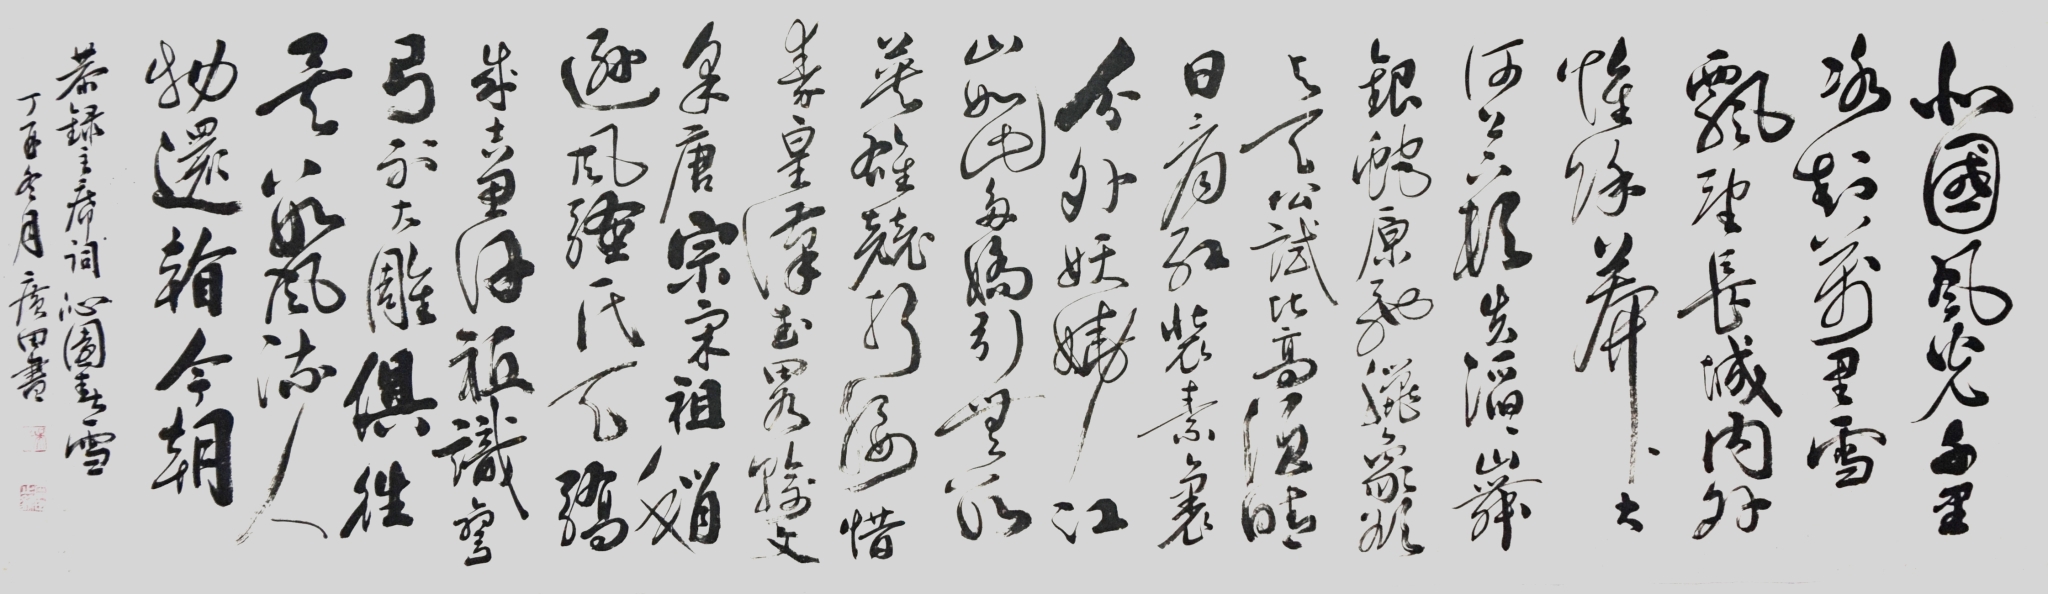 北國風光千里
冰封萬里雪
飄望長城內外
惟餘莽々大
河上下頓失滔々山舞
銀蛇原馳蠟象欲
与天公試比高須晴
日看紅裝素裹
分外妖嬈江
山如此多嬌引無數
英雄競折腰惜
秦皇漢武略輸文
采唐宗宋祖稍
遜風騷一代天驕
成吉思汗祗識彎
弓射大雕俱往
矣數風流人
物還看今朝
恭録主席詞沁園春雪
丁酉冬月廣田書